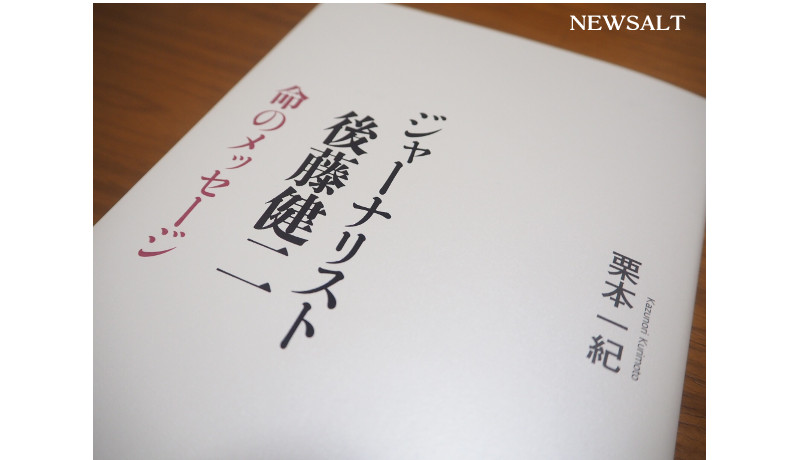 NEWSALT
ジャーナリスト
後藤健二
命のメッセージ
栗本一紀
Kazunori Kurimoto